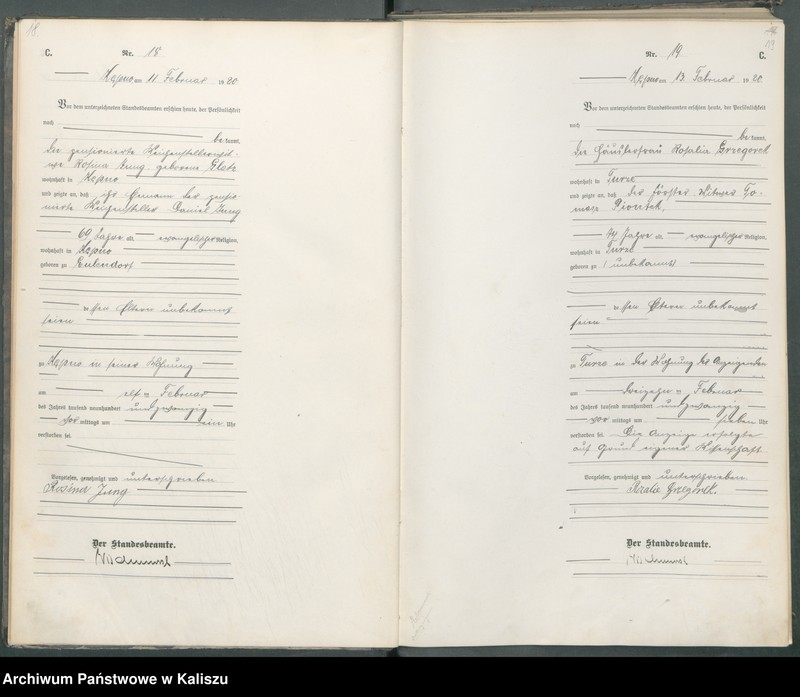 18.
C.
Nr. 18
am 11 Februar 1920
Vor dem unterzeichneten Standesbeamten erschien heute, der Persönlichkeit
nach
be kannt,
die pensionierte
Rosina Jung geborene
wohnhaft in
und zeigte an, daß ihr Ehemann der pensio-
nierte Daniel Jung
69 Jahre alt, evangelischer Religion,
wohnhaft in
geboren zu
dessen Eltern unbekannt
seien
zu in seiner Wohnung
am elf = Februar
des Jahres tausend neunhundert und zwanzig
vor mittags um ein Uhr
verstorben sei.
Vorgelesen, genehmigt und unterschrieben
Rosina Jung
Der Standesbeamte.
19
Nr. 19
C.
am 13 Februar 1920
Vor dem unterzeichneten Standesbeamten erschien heute, der Persönlichkeit
nach
be kannt,
die Häuslerfrau Rosalia Grzegorek
wohnhaft in Turze
und zeigte an, daß der Witwer
74 Jahre alt, evangelischer Religion,
wohnhaft in Turze
geboren zu (unbekannt)
dessen Eltern unbekannt
seien
zu Turze in der Wohnung der Anzeigenden
am dreizehn = Februar
des Jahres tausend neunhundert und zwanzig
vor mittags um sieben Uhr
verstorben sei. Die Anzeige erfolgte
auf Grund eigener Wissenschaft
Vorgelesen, genehmigt und unterschrieben
Rozalie Grzegorek.
Der Standesbeamte.
Archiwum Państwowe w Kaliszu